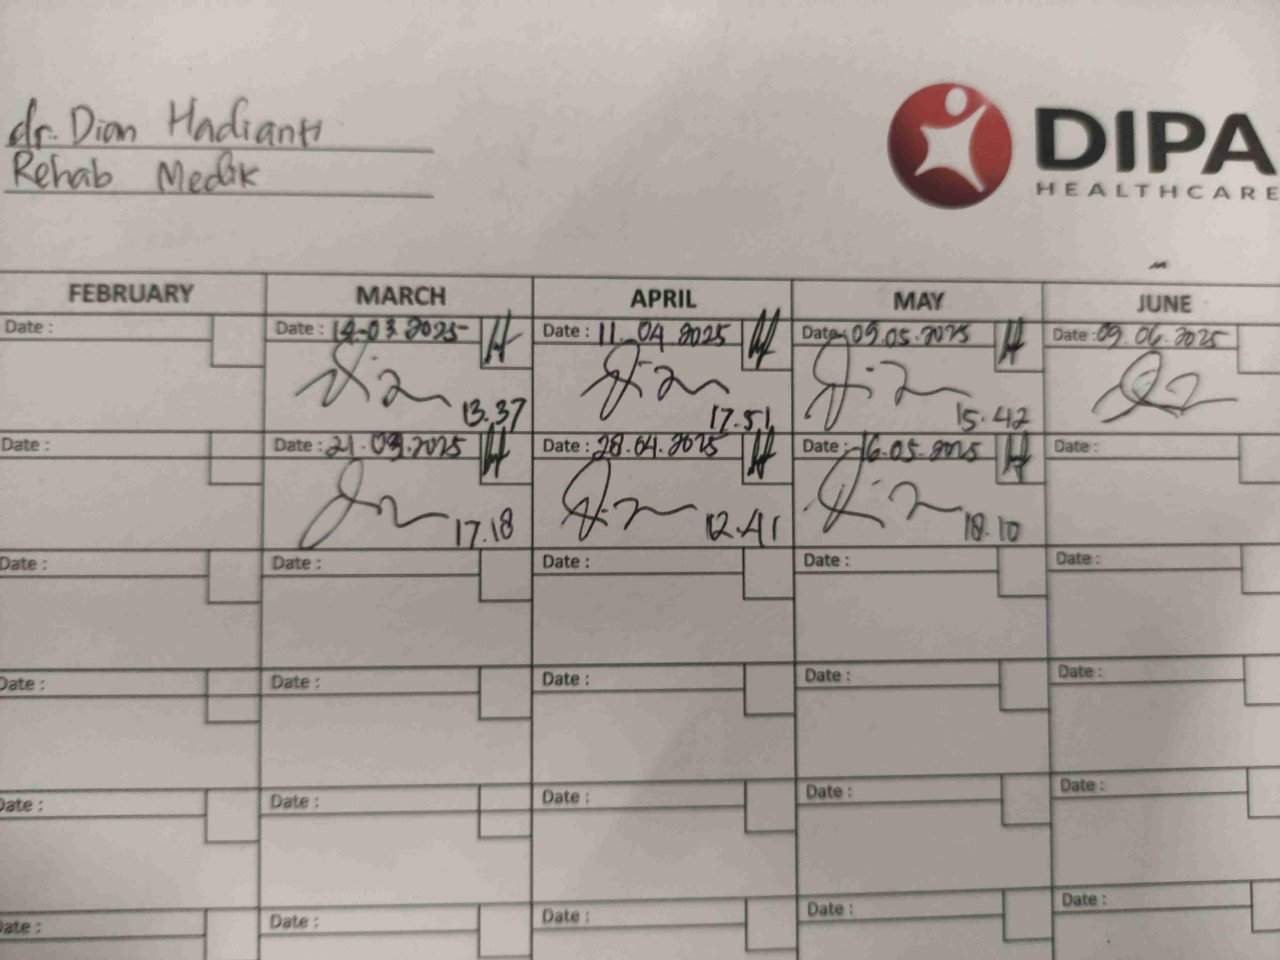 dr. Dian Hadianti
Rehab Medik
DIPA
HEALTHCARE
FEBRUARY MARCH APRIL MAY JUNE
Date : Date : 14-03.2025 Date : 11.04.2025 Date : 09.05.2025 Date : 09.06.2025
13.37 17.51 15.42
Date : Date : 21.03.2025 Date : 28.04.2025 Date : 16.05.2025 Date :
17.18 12.41 18.10
Date : Date : Date : Date : Date :
Date : Date : Date : Date : Date :
Date : Date : Date : Date : Date :
Date : Date : Date : Date : Date :